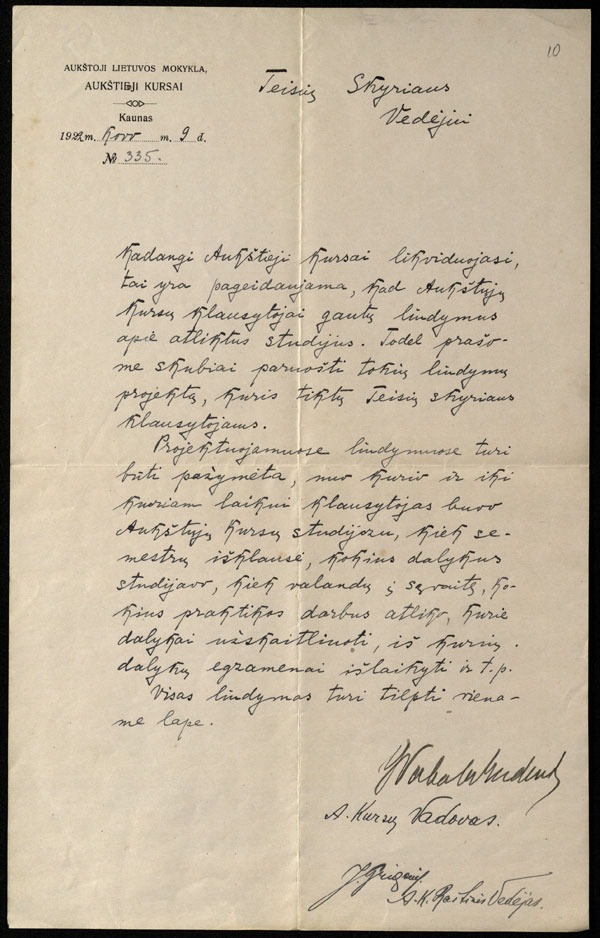 10
AUKŠTOJI LIETUVOS MOKYKLA,
AUKŠTIEJI KURSAI
Kaunas
1922 m. Kovo m. 9 d.
№ 335.
Teisių Skyriaus
Vedėjui
Kadangi Aukštieji Kursai likviduojasi,
tai yra pageidaujama, kad Aukštųjų
Kursų klausytojai gautų liudymus
apie atliktus studijus. Todel prašo-
me skubiai paruošti tokių liudymų
projektą, kuris tiktų Teisių skyriaus
klausytojams.
Projektuojamuose liudymuose turi
būti pažymėta, nuo kurio ir iki
kuriam laikui klausytojas buvo
Aukštųjų Kursų studijozu, kiek se-
mestrų išklausė, kokius dalykus
studijavo, kiek valandų į sąvaitę, ko-
kius praktikos darbus atliko, kurie
dalykai užskaitliuoti, iš kurių
dalykų egzamenai išlaikyti ir t.p.
Visas liudymas turi tilpti viena-
me lape.
A. Kursų Vadovas.
J. Grigonis
A. K. Raštinės Vedėjas.